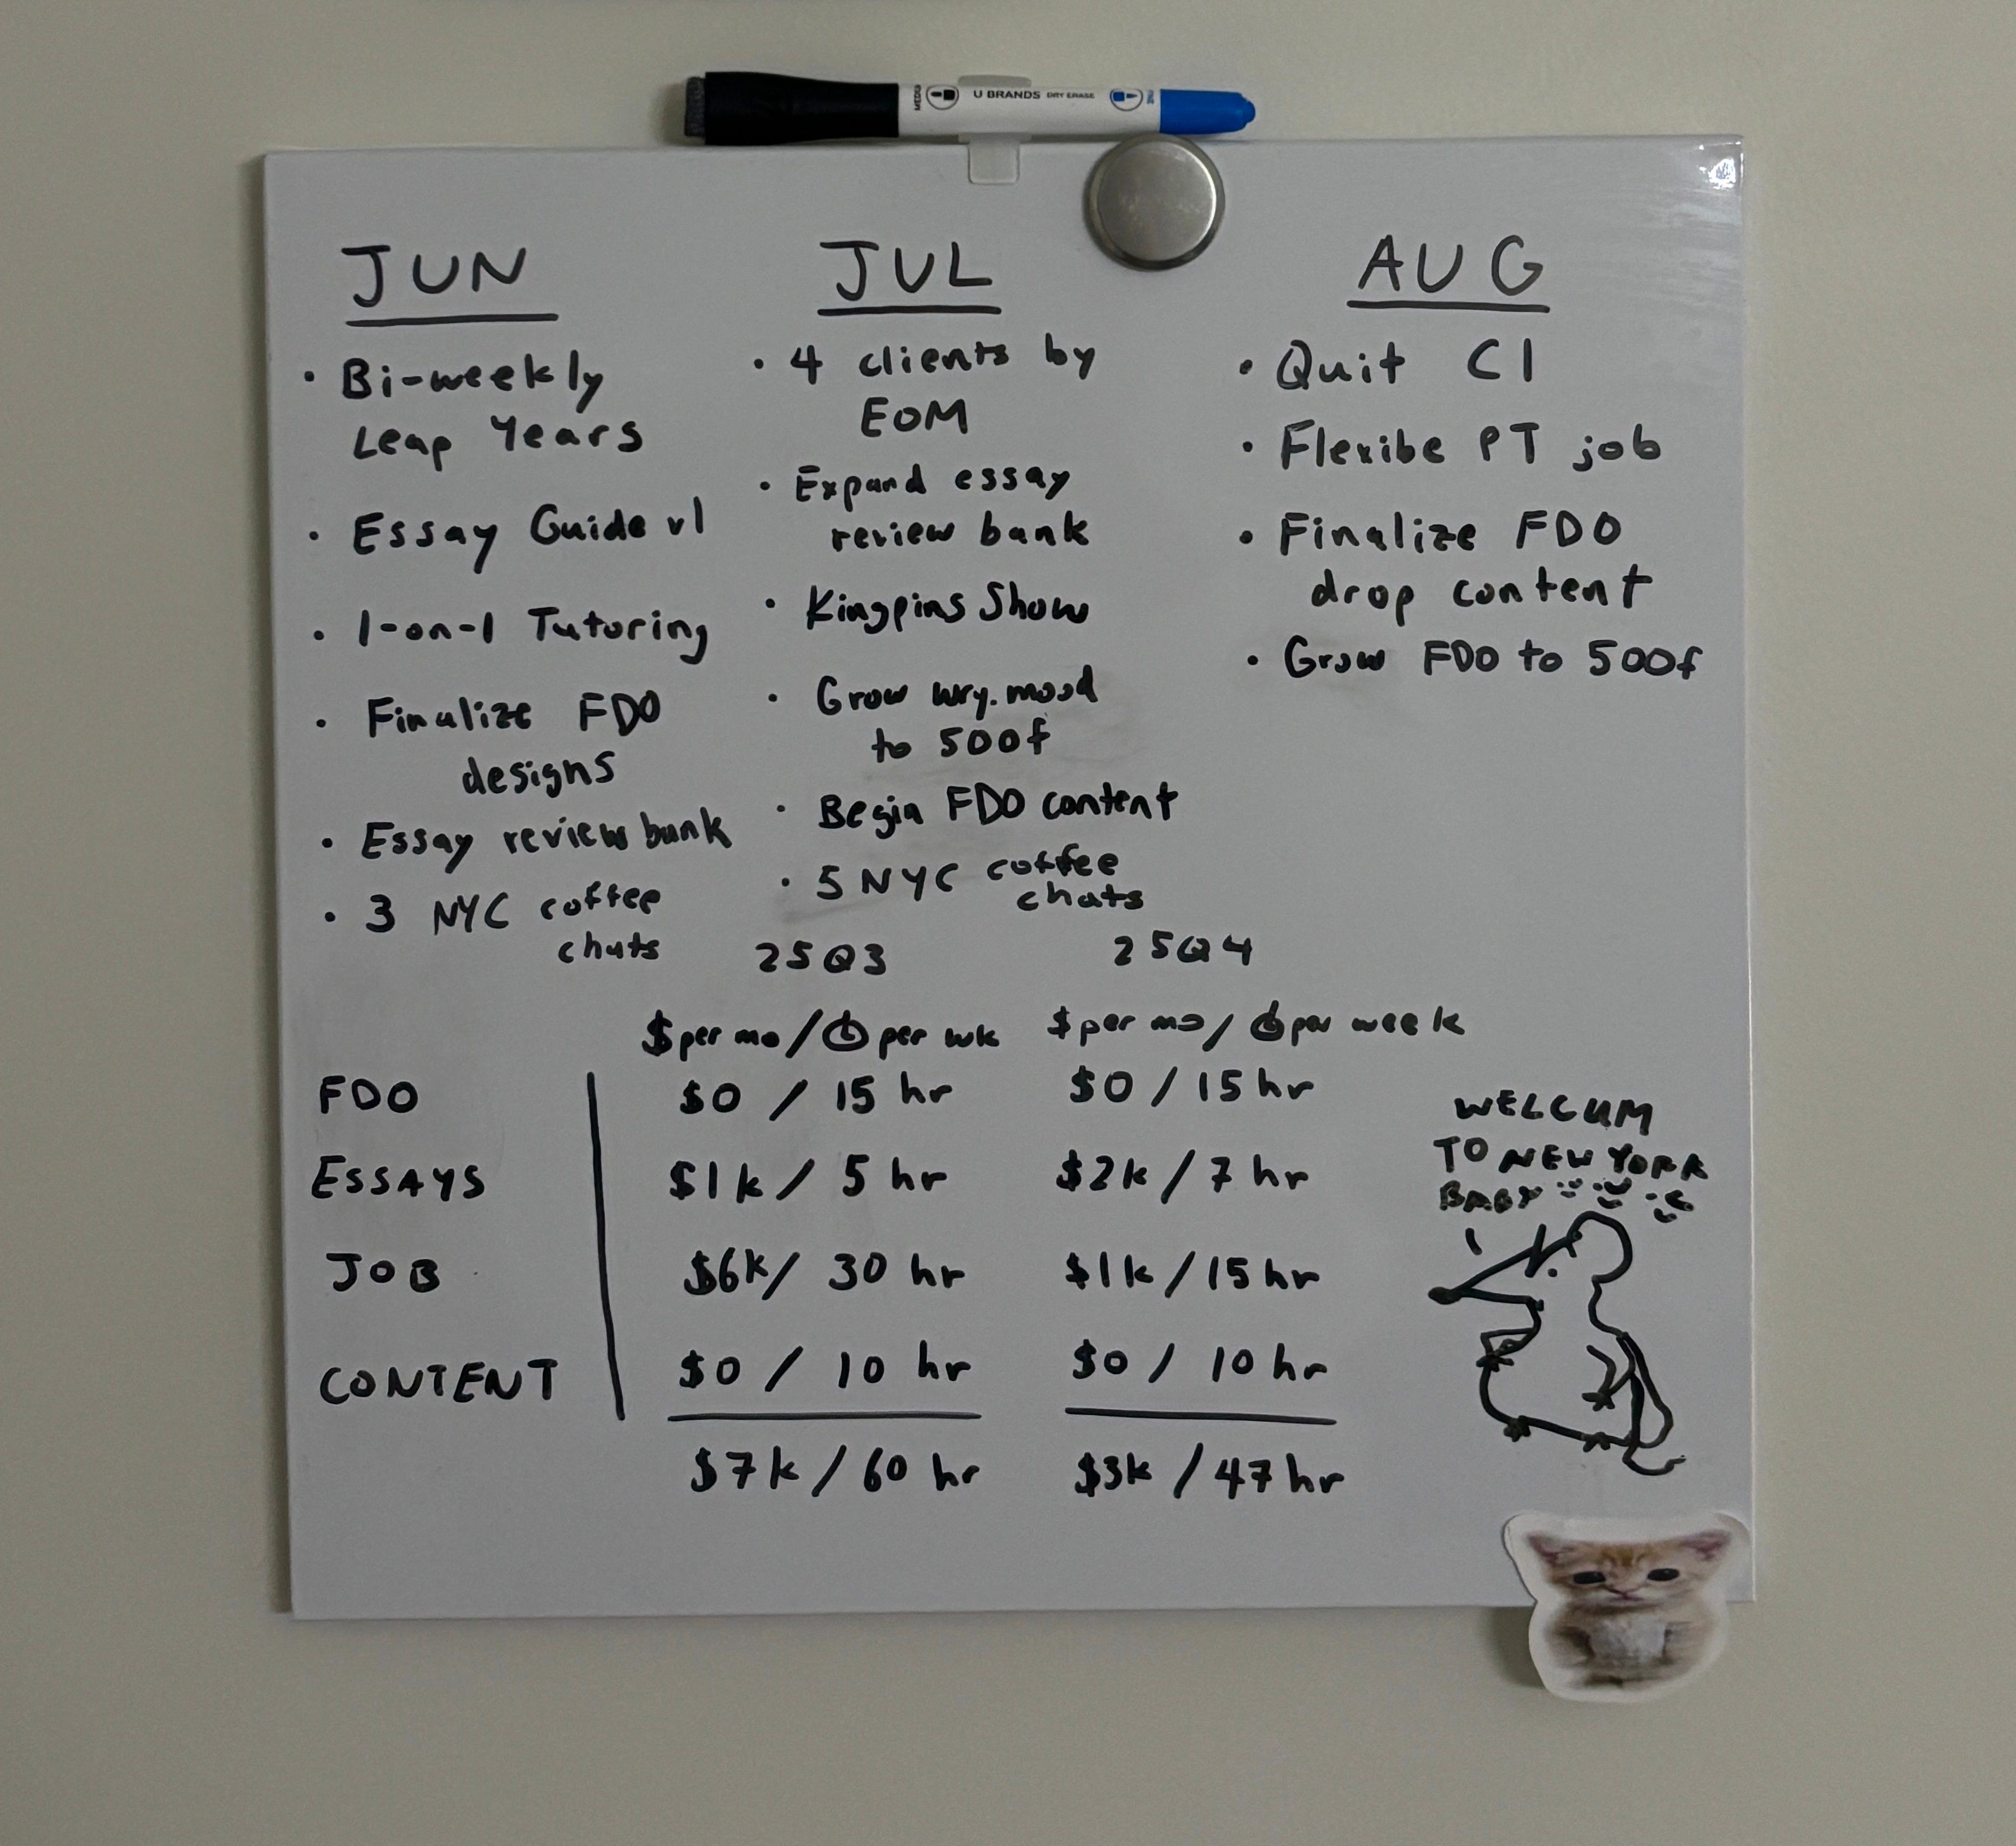 U BRANDS DRY ERASE
JUN
• Bi-weekly
Leap Years
• Essay Guide v1
• 1-on-1 Tutoring
• Finalize FDO
designs
• Essay review bank
• 3 NYC coffee
chats
JUL
• 4 clients by
EOM
• Expand essay
review bank
• Kingpins Show
• Grow wry.mood
to 500f
• Begin FDO content
• 5 NYC coffee
chats
AUG
• Quit C1
• Flexibe PT job
• Finalize FDO
drop content
• Grow FDO to 500f
25Q3 25Q4
$ per mo / per wk $ per mo / per week
FDO $0 / 15 hr $0 / 15 hr
ESSAYS $1k / 5 hr $2k / 7 hr
JOB $6k / 30 hr $1k / 15 hr
CONTENT $0 / 10 hr $0 / 10 hr
$7k / 60 hr $3k / 47 hr
WELCUM
TO NEW YORK
BABY